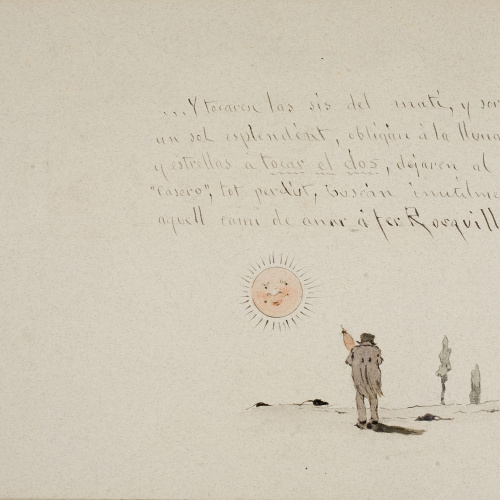 ...Y tocaren las sis del matí, y sor
un sol esplendént, obligán á la lluna
y estrellas á tocar el dos, dejaren al
"Casero", tot perdut, buscán inutilme
aquell camí de anar á fer Rosquill